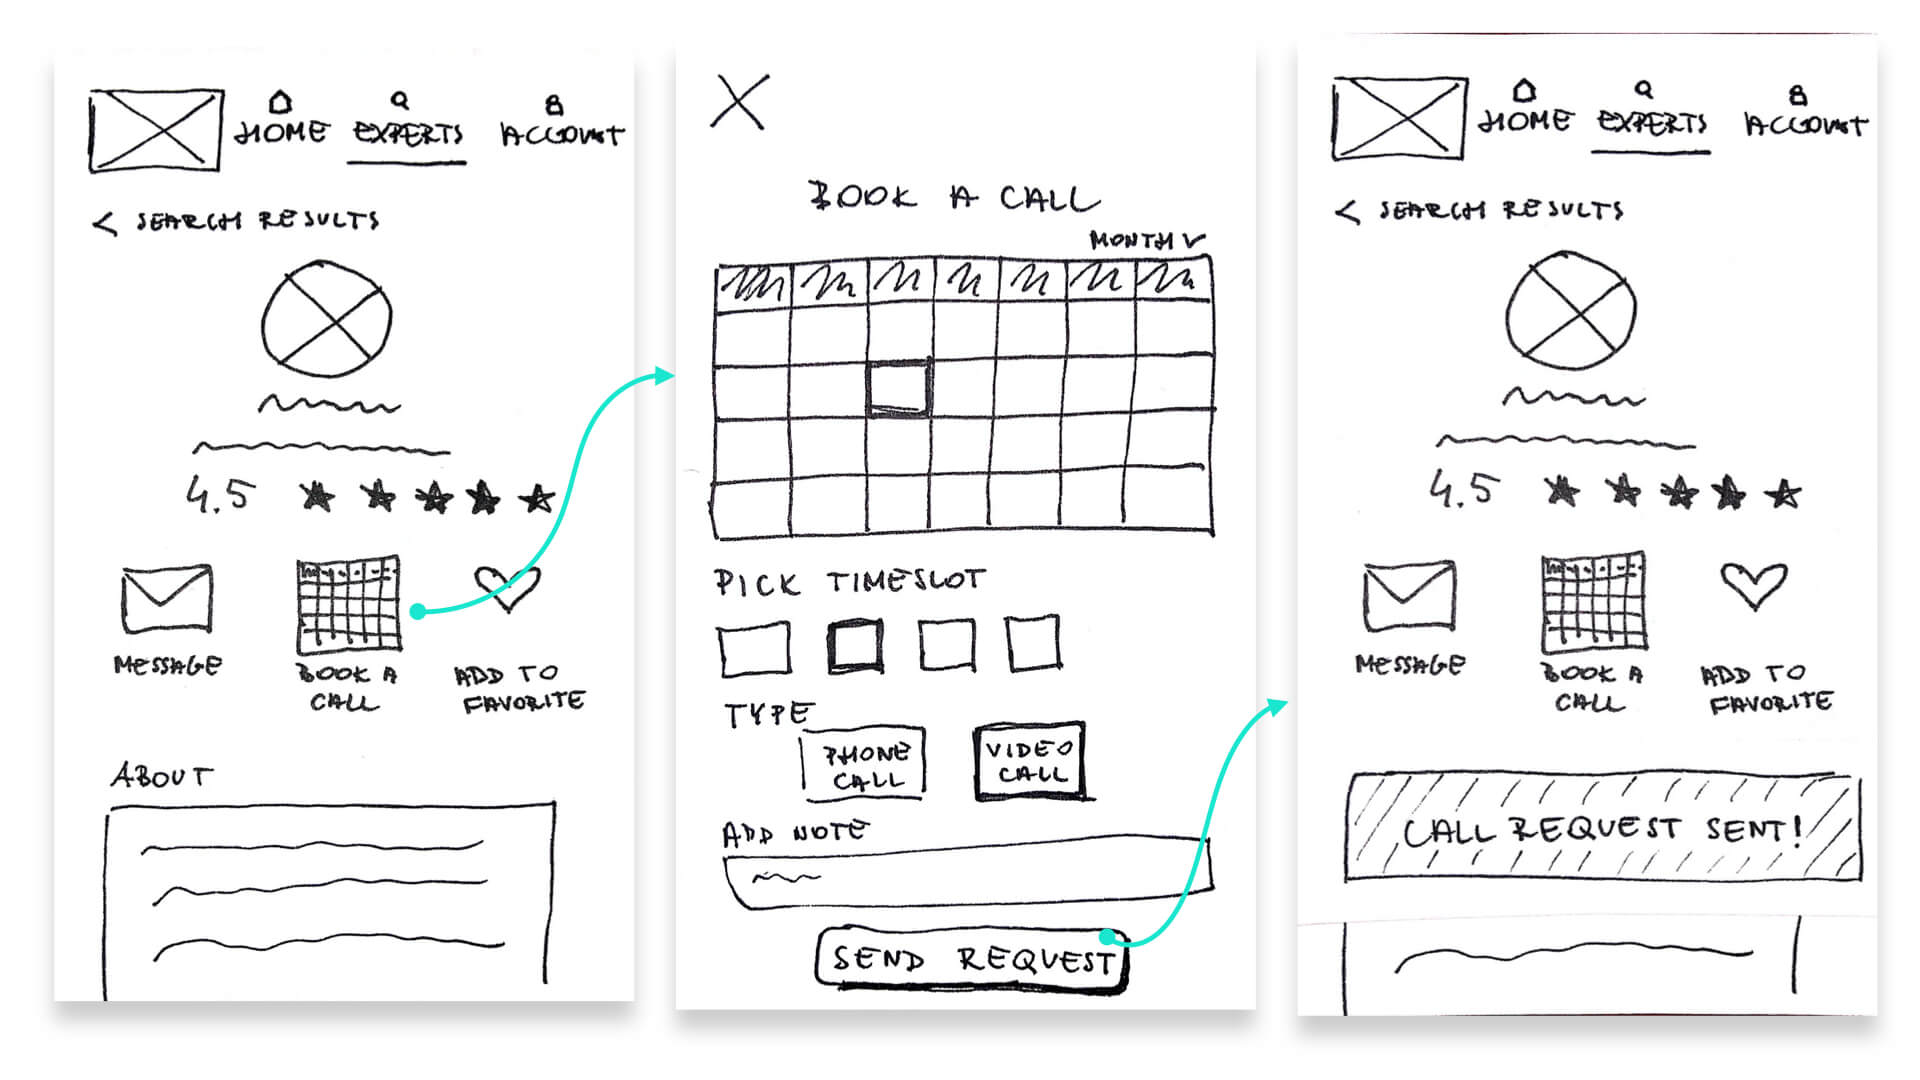 HOME EXPERTS ACCOUNT
< SEARCH RESULTS
4.5
MESSAGE
BOOK A
CALL
ADD TO
FAVORITE
ABOUT
BOOK A CALL
MONTH
PICK TIMESLOT
TYPE
PHONE
CALL
VIDEO
CALL
ADD NOTE
SEND REQUEST
HOME EXPERTS ACCOUNT
< SEARCH RESULTS
4.5
MESSAGE
BOOK A
CALL
ADD TO
FAVORITE
CALL REQUEST SENT!